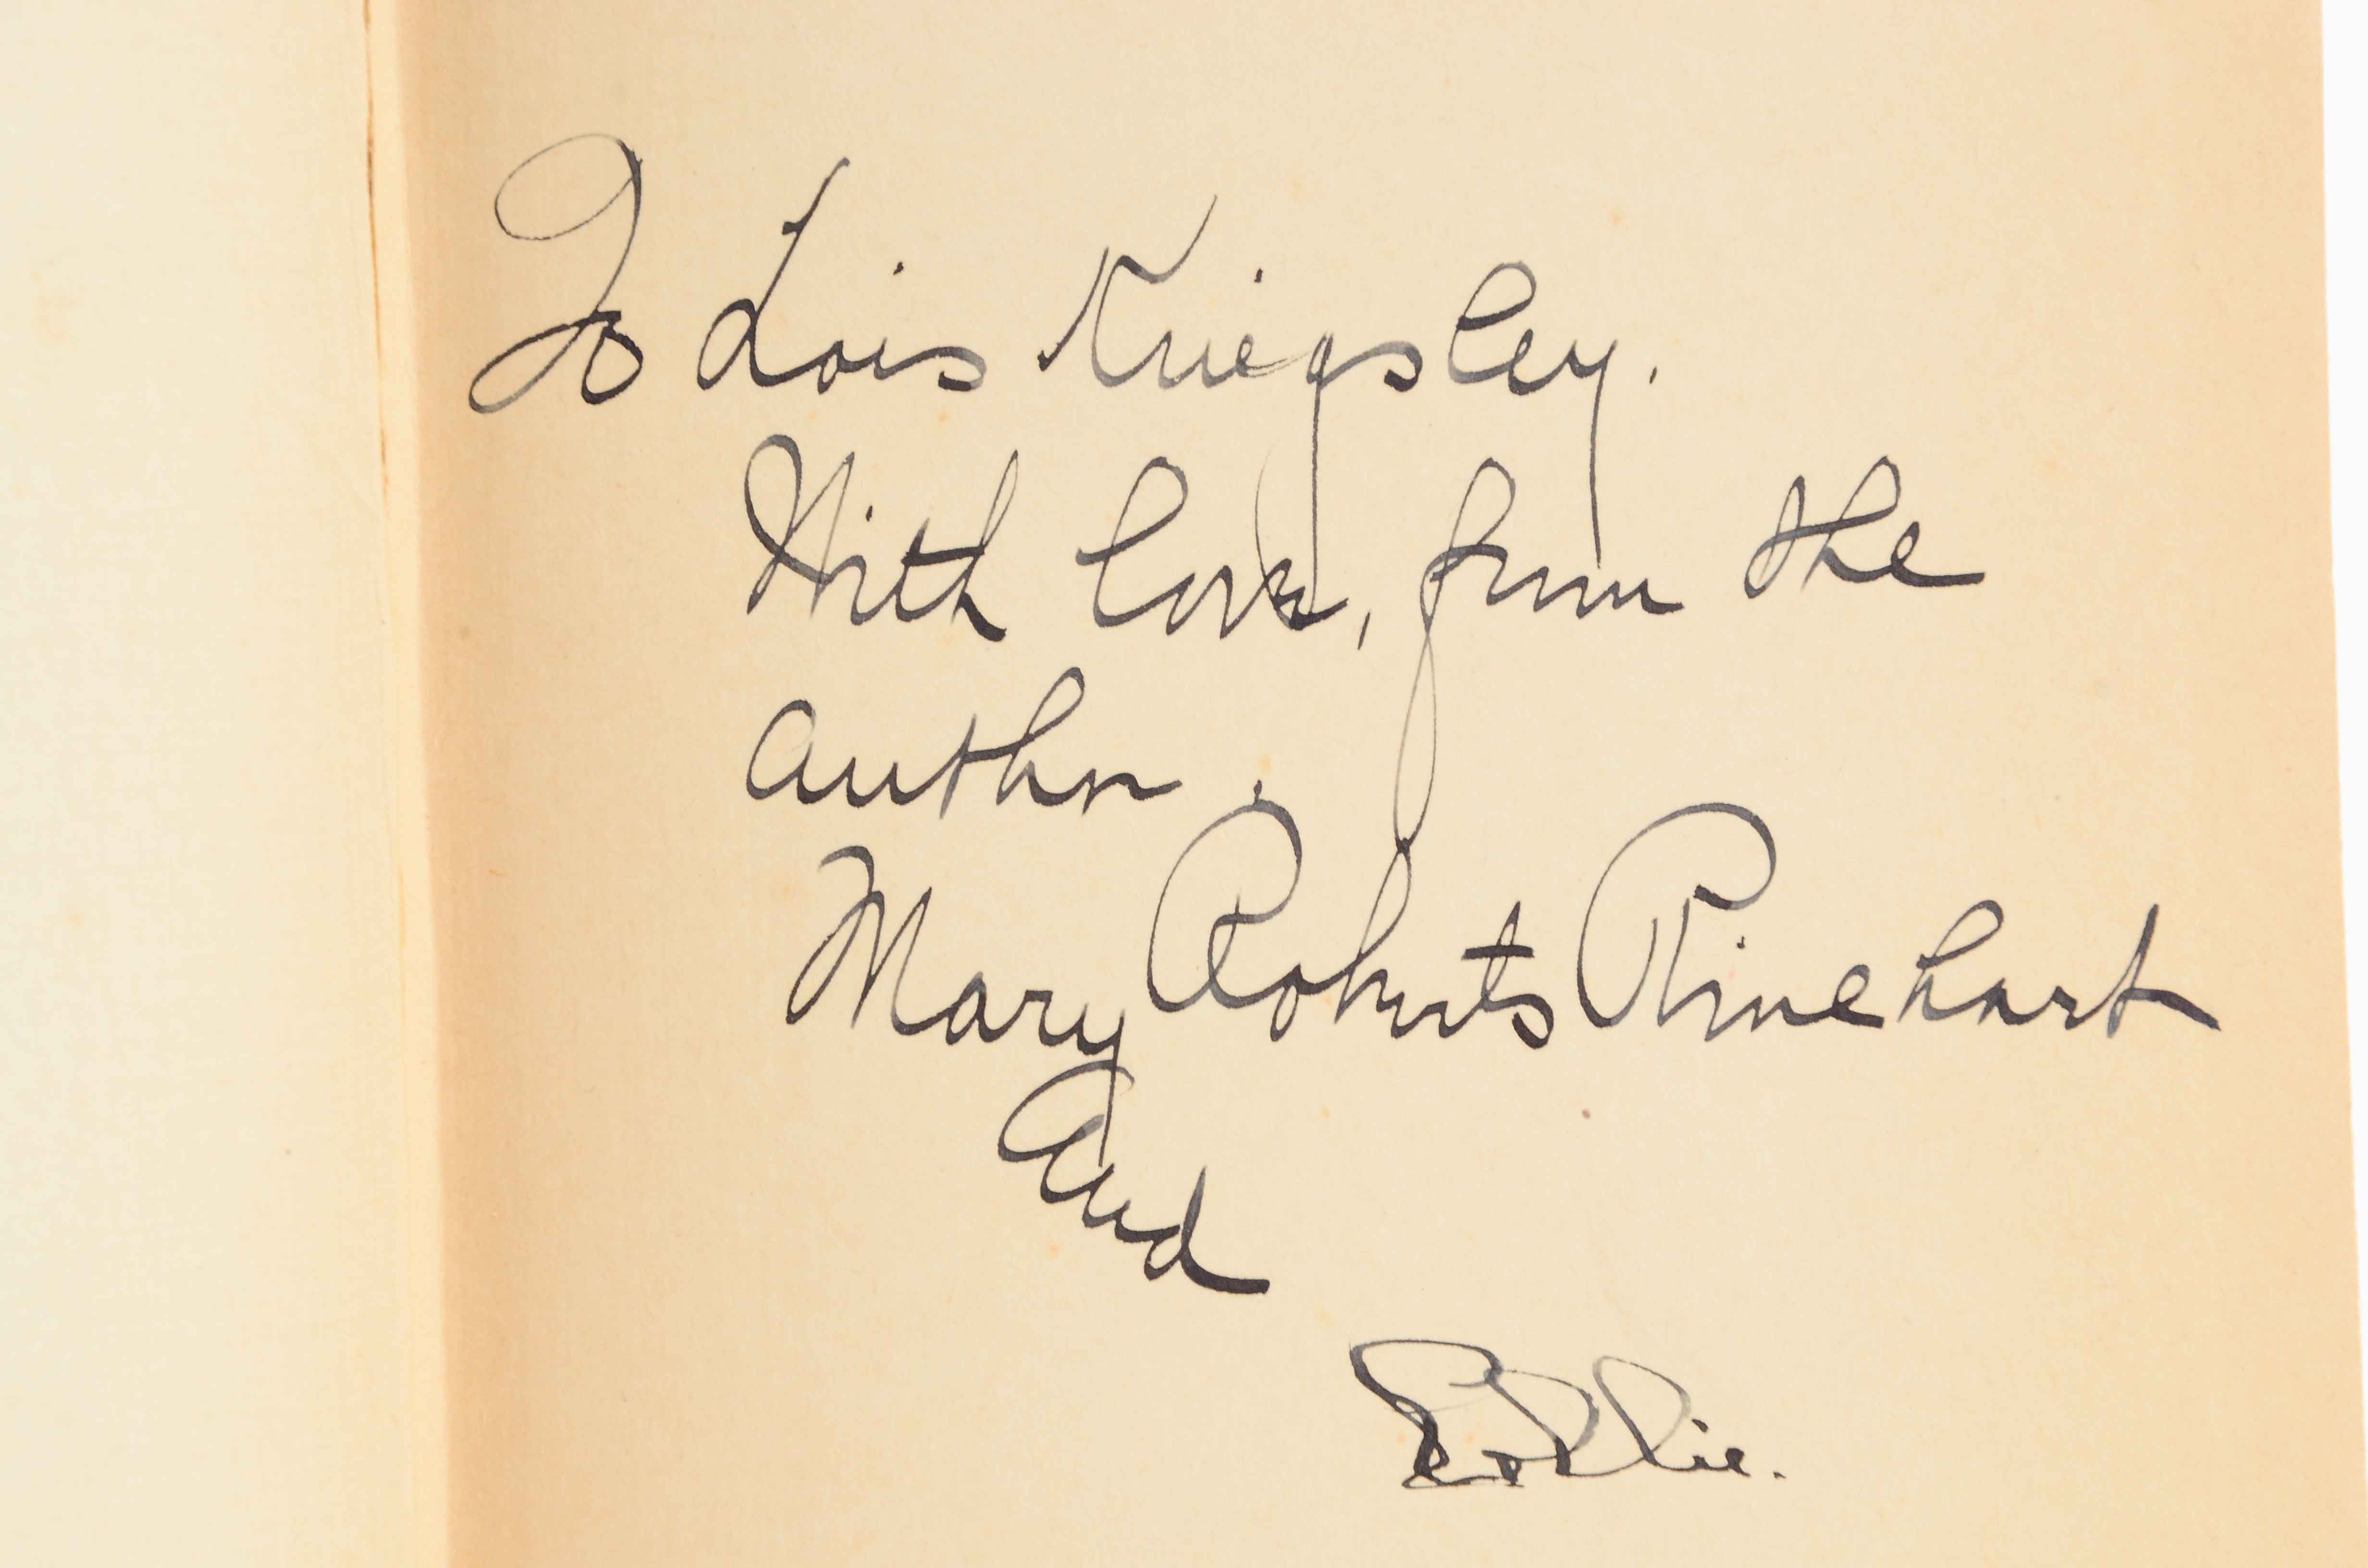 To Lois Kingsley.
With love, from the
author.
Mary Roberts Rinehart
And
Eddie.